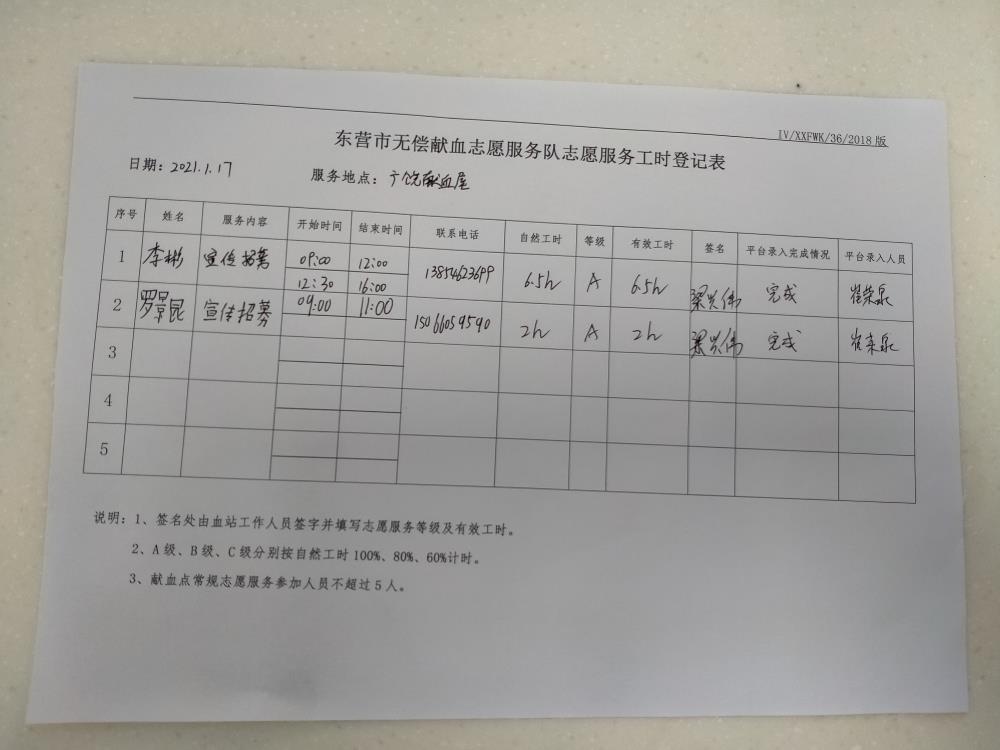 IV/XXFWK/36/2018 版
东营市无偿献血志愿服务队志愿服务工时登记表
日期：2021.1.17 服务地点：广饶献血屋
序号 姓名 服务内容 开始时间 结束时间 联系电话 自然工时 等级 有效工时 签名 平台录入完成情况 平台录入人员
1 李彬 宣传招募 09:00 12:00 13854623699 6.5h A 6.5h 梁兴伟 完成 崔荣泉
12:30 16:00
2 罗景昆 宣传招募 09:00 11:00 15066059590 2h A 2h 梁兴伟 完成 崔荣泉
3
4
5
说明：1、签名处由血站工作人员签字并填写志愿服务等级及有效工时。
2、A 级、B 级、C 级分别按自然工时 100%、80%、60%计时。
3、献血点常规志愿服务参加人员不超过 5 人。